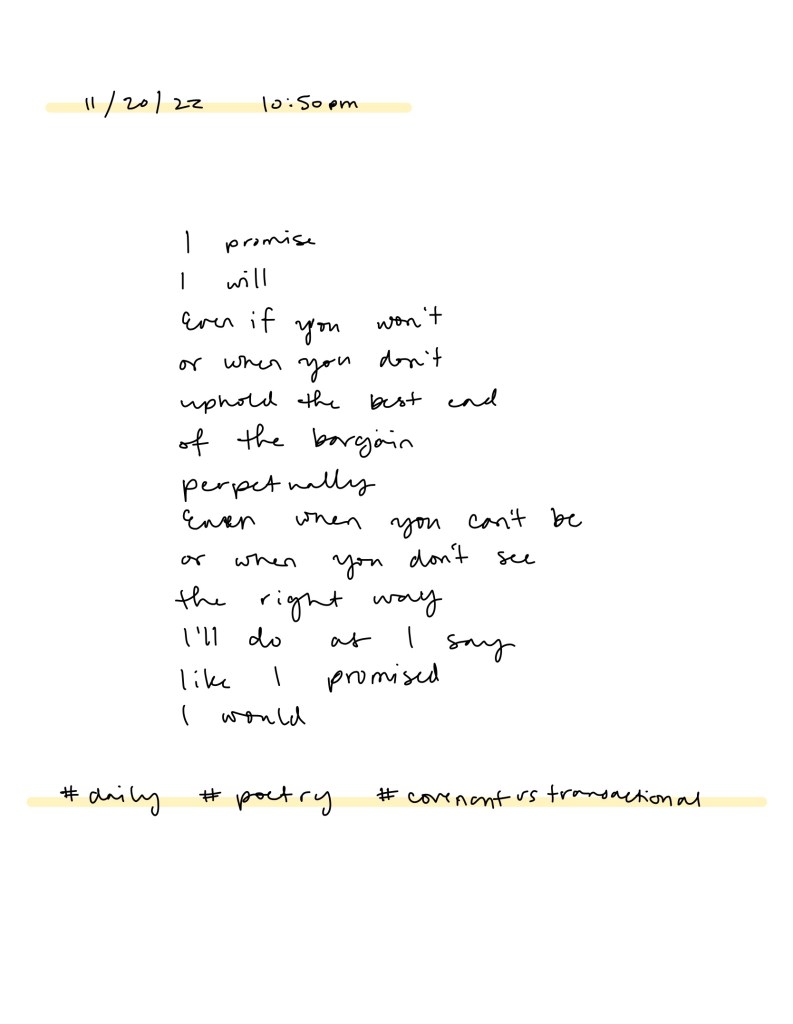 11/20/22 10:50pm
I promise
I will
Even if you won't
or when you don't
uphold the best end
of the bargain
perpetually
Even when you can't be
or when you don't see
the right way
I'll do as I say
like I promised
I would
#daily #poetry #covenant vs transactional